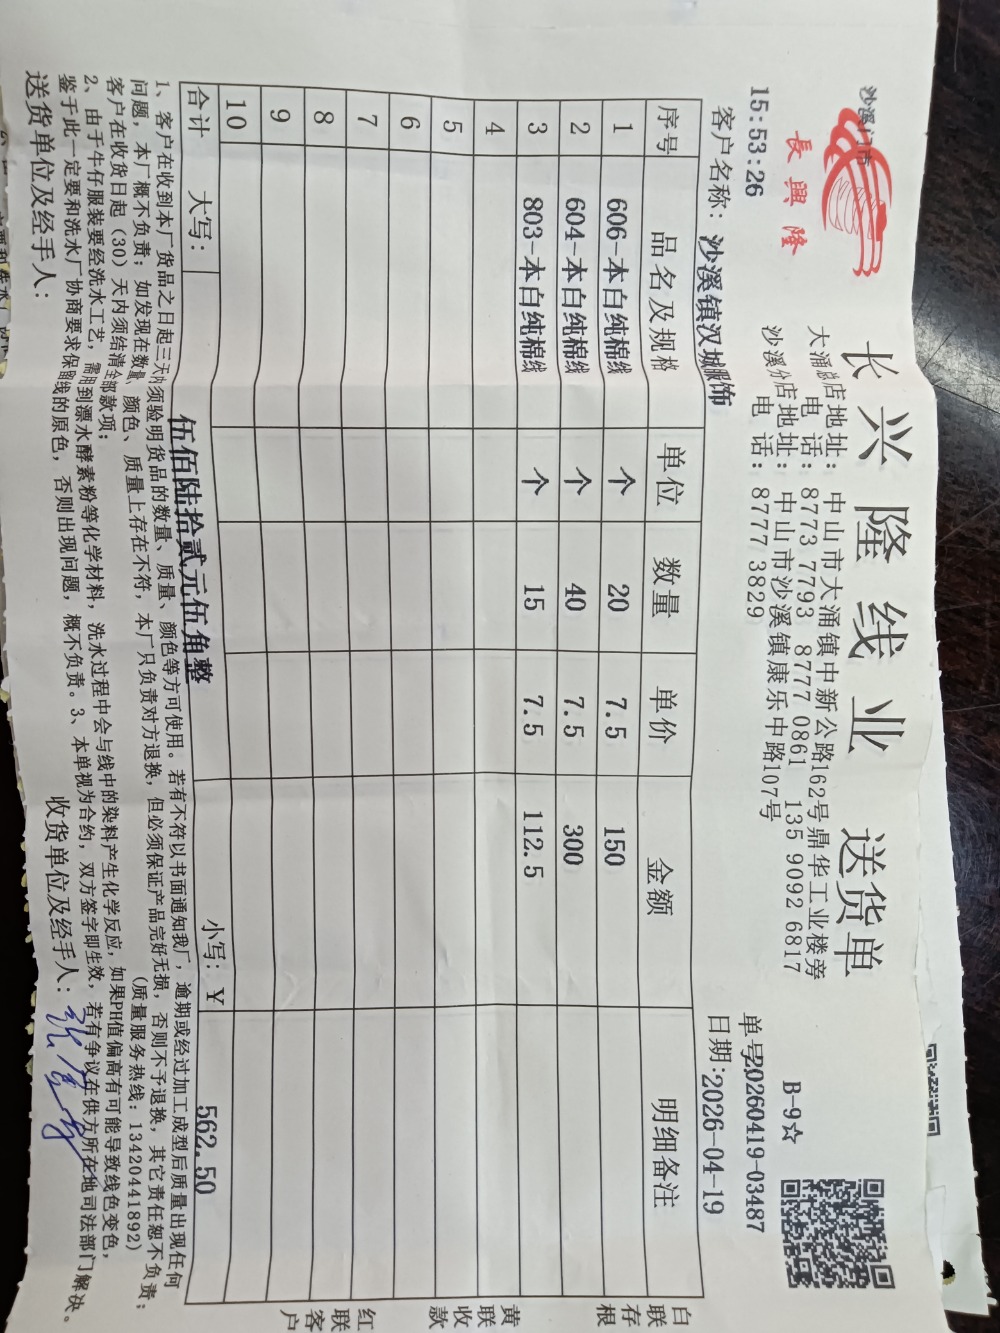 沙溪门市
長興隆
15:53:26
长兴隆线业 送货单
B-9☆
大涌总店地址:中山市大涌镇中新公路162号鼎华工业楼旁
电 话:8773 7793 8777 0861 135 9092 6817
沙溪分店地址:中山市沙溪镇康乐中路107号
电 话:8777 3829
单号20260419-03487
客户名称:沙溪镇汉城服饰
日期:2026-04-19
序号 品名及规格 单位 数量 单价 金额 明细备注
1 606-本白纯棉线 个 20 7.5 150
2 604-本白纯棉线 个 40 7.5 300
3 803-本白纯棉线 个 15 7.5 112.5
4
5
6
7
8
9
10
合计 大写: 伍佰陆拾贰元伍角整 小写:¥ 562.50
白联存根
黄联收款
红联客户
1、客户在收到本厂货品之日起三天内须验明货品的数量、质量、颜色等方可使用。若有不符以书面通知我厂,逾期或经过加工成型后质量出现任何
问题,本厂概不负责;如发现在数量、颜色、质量上存在不符,本厂只负责对方退换,但必须保证产品完好无损,否则不予退换,其它责任恕不负责;
客户在收货日起(30)天内须结清全部款项; (质量服务热线:13420441892)
2、由于牛仔服装要经洗水工艺,需用到漂水酵素粉等化学材料,洗水过程中会与线中的染料产生化学反应,如果PH值偏高有可能导致线色变色,
鉴于此一定要和洗水厂协商要求保留线的原色,否则出现问题,概不负责。3、本单视为合约,双方签字即生效,若有争议在供方所在地司法部门解决。
送货单位及经手人: 收货单位及经手人: